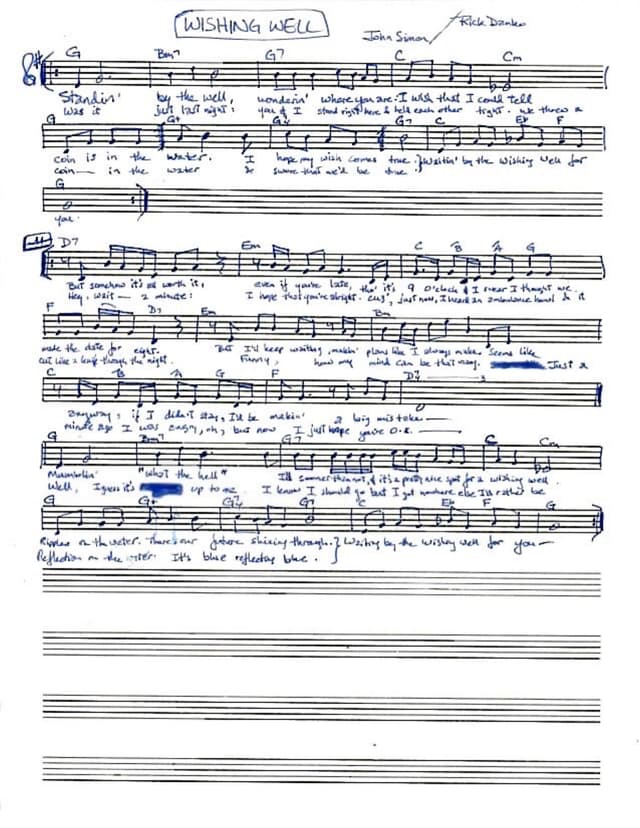 WISHING WELL
John Simon / Rick Danko
G Bm7 G7 C Cm
Standin' by the well, wonderin' where you are. I wish that I could tell
Was it just last night: you & I stand right here & held each other tight. We threw a
G G+ G4 G7 C Eb F
coin is in the water. I hope my wish comes true. } Waitin' by the wishing well for
coin — in the water & swore that we'd be true.
G
you.
D7 Em C B A G
But somehow it's all worth it, even if you're late, tho' it's 9 o'clock & I swear I thought we
Hey, wait — 2 minute: I hope that you're alright. Cuz', just now, I heard an ambulance & it
F D7 Em Bm
made the date for eight. But I'd keep waiting, makin' plans like I always make. Seems like
cut like a knife through the night. Funny, how my mind can be that way. Just a
C B A G F D4 3
anyway, if I didn't stay, I'd be makin' a big mistake —
minute ago I was angry, oh, but now I just hope you're O.K. —
G Bm7 G7 C Cm
Mumblin' "What the hell" I'll sooner than not, & it's a pretty nice spot for a wishing well.
Well, I guess it's up to me I know I should go but I got nowhere else I'd rather be
G G+ G4 G7 C Eb F G
Ripples on the water. There's our future shining through. } Waiting by the wishing well for you —
Reflection on the water. It's blue reflecting blue.